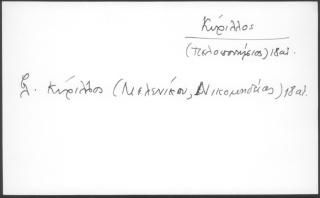 Κύριλλος
(Πελοποννήσιος) 18 αι.
βλ. Κύριλλος (Μελενίκου, Νικομηδείας) 18 αι.